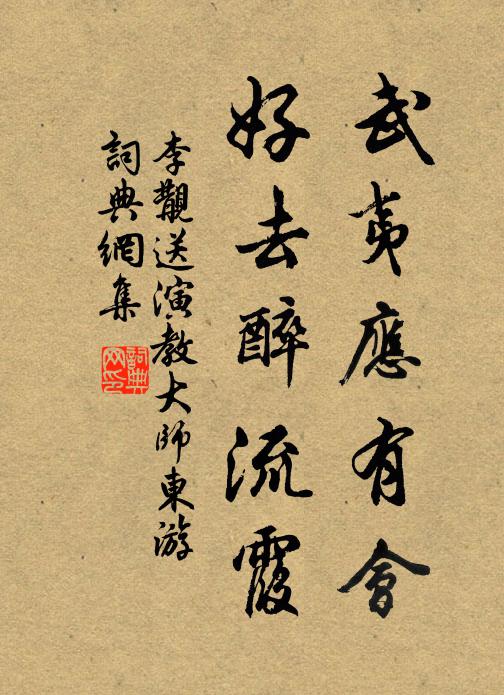 武夷應有會
好去醉流霞
李覯送演教大師東游
詞典網集
詞典網印